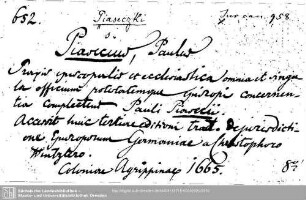 652. Piaseczki Jur. can. 958.
s.
Piasecius, Paulus
Praxis episcopalis et ecclesiastica omnia et singu
la officium potestatemque Episcopi concernen
tia complectens Pauli Piasecii.
Accessit huic tertiae editioni tract. de jurisdicti
one Episcoporum Germaniae a Christophoro
Wintzlero.
Coloniae Agrippinae 1665. 8°
Sächsische Landesbibliothek -
Staats- und Universitätsbibliothek Dresden